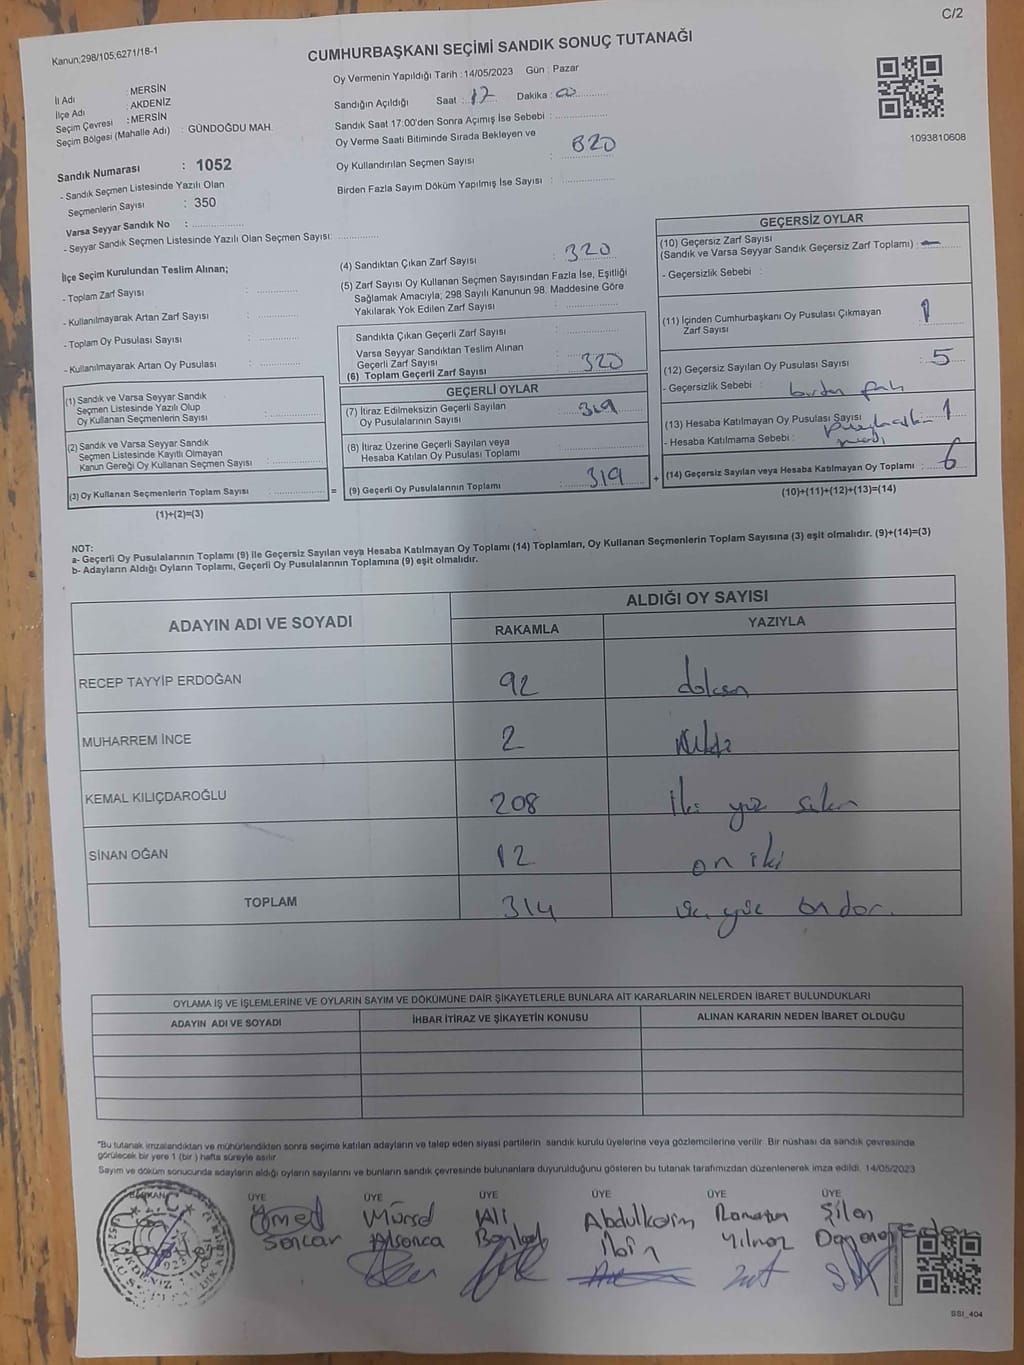 C/2
Kanun;298/105;6271/18-1
CUMHURBAŞKANI SEÇİMİ SANDIK SONUÇ TUTANAĞI
Oy Vermenin Yapıldığı Tarih : 14/05/2023 Gün : Pazar
İl Adı : MERSİN
İlçe Adı : AKDENİZ
Seçim Çevresi : MERSİN
Seçim Bölgesi (Mahalle Adı) : GÜNDOĞDU MAH.
Sandığın Açıldığı Saat : 17 Dakika : 00
Sandık Saat 17.00'den Sonra Açımış İse Sebebi :
Oy Verme Saati Bitiminde Sırada Bekleyen ve
Oy Kullandırılan Seçmen Sayısı : 320
Birden Fazla Sayım Döküm Yapılmış İse Sayısı :
1093810608
Sandık Numarası : 1052
- Sandık Seçmen Listesinde Yazılı Olan
Seçmenlerin Sayısı : 350
Varsa Seyyar Sandık No :
- Seyyar Sandık Seçmen Listesinde Yazılı Olan Seçmen Sayısı:
İlçe Seçim Kurulundan Teslim Alınan;
- Toplam Zarf Sayısı :
- Kullanılmayarak Artan Zarf Sayısı :
- Toplam Oy Pusulası Sayısı :
- Kullanılmayarak Artan Oy Pusulası :
(1) Sandık ve Varsa Seyyar Sandık
Seçmen Listesinde Yazılı Olup
Oy Kullanan Seçmenlerin Sayısı :
(2) Sandık ve Varsa Seyyar Sandık
Seçmen Listesinde Kayıtlı Olmayan
Kanun Gereği Oy Kullanan Seçmen Sayısı :
(3) Oy Kullanan Seçmenlerin Toplam Sayısı : =
(1)+(2)=(3)
(4) Sandıktan Çıkan Zarf Sayısı : 320
(5) Zarf Sayısı Oy Kullanan Seçmen Sayısından Fazla İse, Eşitliği
Sağlamak Amacıyla; 298 Sayılı Kanunun 98. Maddesine Göre
Yakılarak Yok Edilen Zarf Sayısı :
Sandıkta Çıkan Geçerli Zarf Sayısı :
Varsa Seyyar Sandıktan Teslim Alınan
Geçerli Zarf Sayısı :
(6) Toplam Geçerli Zarf Sayısı : 320
GEÇERLİ OYLAR
(7) İtiraz Edilmeksizin Geçerli Sayılan
Oy Pusulalarının Sayısı : 319
(8) İtiraz Üzerine Geçerli Sayılan veya
Hesaba Katılan Oy Pusulası Toplamı :
(9) Geçerli Oy Pusulalarının Toplamı : 319 +
GEÇERSİZ OYLAR
(10) Geçersiz Zarf Sayısı
(Sandık ve Varsa Seyyar Sandık Geçersiz Zarf Toplamı) : –
- Geçersizlik Sebebi :
(11) İçinden Cumhurbaşkanı Oy Pusulası Çıkmayan
Zarf Sayısı :
(12) Geçersiz Sayılan Oy Pusulası Sayısı : 5
- Geçersizlik Sebebi : birden fazla
(13) Hesaba Katılmayan Oy Pusulası Sayısı 1
- Hesaba Katılmama Sebebi :
(14) Geçersiz Sayılan veya Hesaba Katılmayan Oy Toplamı : 6
(10)+(11)+(12)+(13)=(14)
NOT:
a- Geçerli Oy Pusulalarının Toplamı (9) ile Geçersiz Sayılan veya Hesaba Katılmayan Oy Toplamı (14) Toplamları, Oy Kullanan Seçmenlerin Toplam Sayısına (3) eşit olmalıdır. (9)+(14)=(3)
b- Adayların Aldığı Oyların Toplamı, Geçerli Oy Pusulalarının Toplamına (9) eşit olmalıdır.
ADAYIN ADI VE SOYADI
ALDIĞI OY SAYISI
RAKAMLA YAZIYLA
RECEP TAYYİP ERDOĞAN 92 doksan
MUHARREM İNCE 2
KEMAL KILIÇDAROĞLU 208 iki yüz sekiz
SİNAN OĞAN 12 on iki
TOPLAM 314 üç yüz on dör.
OYLAMA İŞ VE İŞLEMLERİNE VE OYLARIN SAYIM VE DÖKÜMÜNE DAİR ŞİKAYETLERLE BUNLARA AİT KARARLARIN NELERDEN İBARET BULUNDUKLARI
ADAYIN ADI VE SOYADI İHBAR İTİRAZ VE ŞİKAYETİN KONUSU ALINAN KARARIN NEDEN İBARET OLDUĞU
"Bu tutanak imzalandıktan ve mühürlendikten sonra seçime katılan adayların ve talep eden siyasi partilerin sandık kurulu üyelerine veya gözlemcilerine verilir. Bir nüshası da sandık çevresinde
görülecek bir yere 1 (bir ) hafta süreyle asılır.
Sayım ve döküm sonucunda adayların aldığı oyların sayılarını ve bunların sandık çevresinde bulunanlara duyurulduğunu gösteren bu tutanak tarafımızdan düzenlenerek imza edildi. 14/05/2023
BAŞKAN ÜYE ÜYE ÜYE ÜYE ÜYE ÜYE
Ali Abdulkerim Ramazan Şilan
Yılmaz
SSI_404